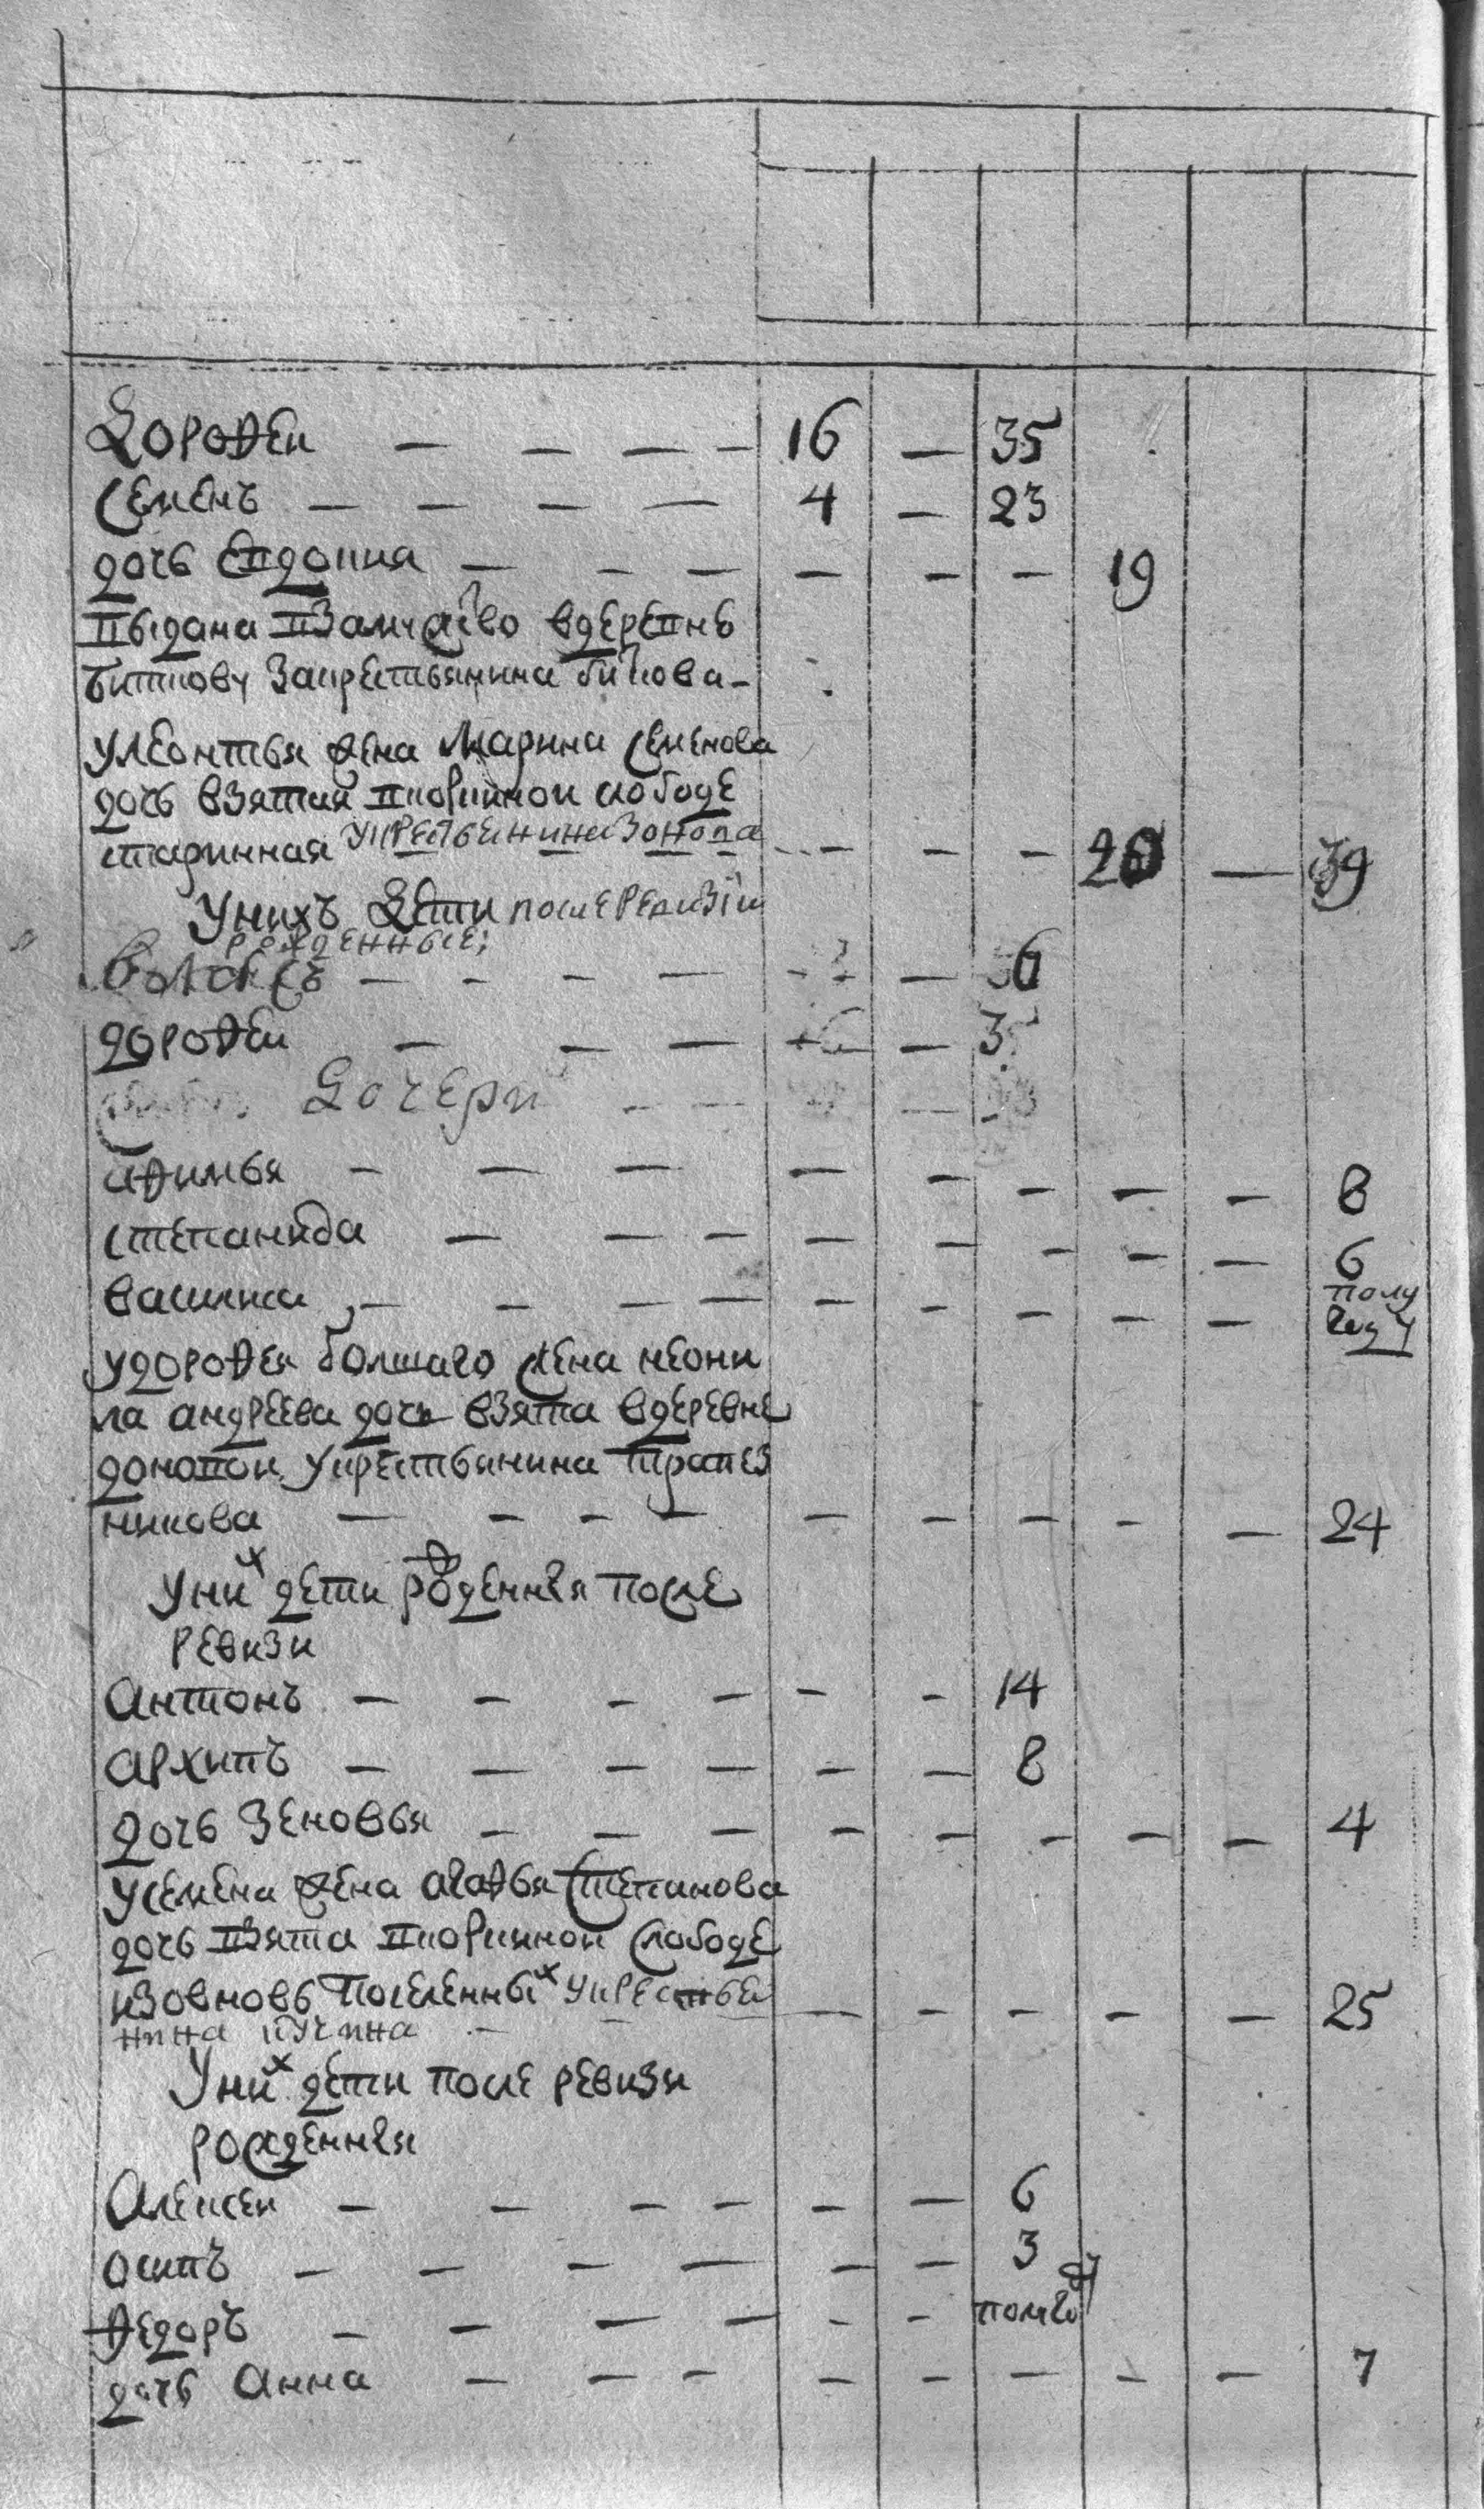 Дорофеи — — — — 16 — 35
Семенъ — — — — 4 — 23
дочь Евдокия — — — — — — 19
выдана взамужство вдеревнѣ
Биткову закрестьянина бикова
Улеонтья жена Марина Семенова
дочь взятая вкоринной слободе
старинная укрестьенина Зонова — — — 20 — 39
Унихъ дети после ревизiи
рожденные:
— — — — — 36
дорофеи — — — — 35
Дочери
афимья — — — — — — — — 8
степанида — — — — — — — — 6
василиса — — — — — — — — — полу
году
удорофея болшаго жена неони
ла андреева дочь взята вдеревне
доновои укрестьянина трапез
никова — — — — — — — — — 24
Унихъ дети рожденныя после
ревизи
Антонъ — — — — — — 14
архипъ — — — — — — 8
дочь Зеновья — — — — — — — — 4
усемена жена агафья Степанова
дочь взята вкоринной слободе
изовновь поселенных укрестье
нина кучина — — — — — — 25
Уних дети после ревизи
рожденныя
Алексеи — — — — — — 6
осипъ — — — — — — 3
Федоръ — — — — — — полгоду
дочь Анна — — — — — — — — 7